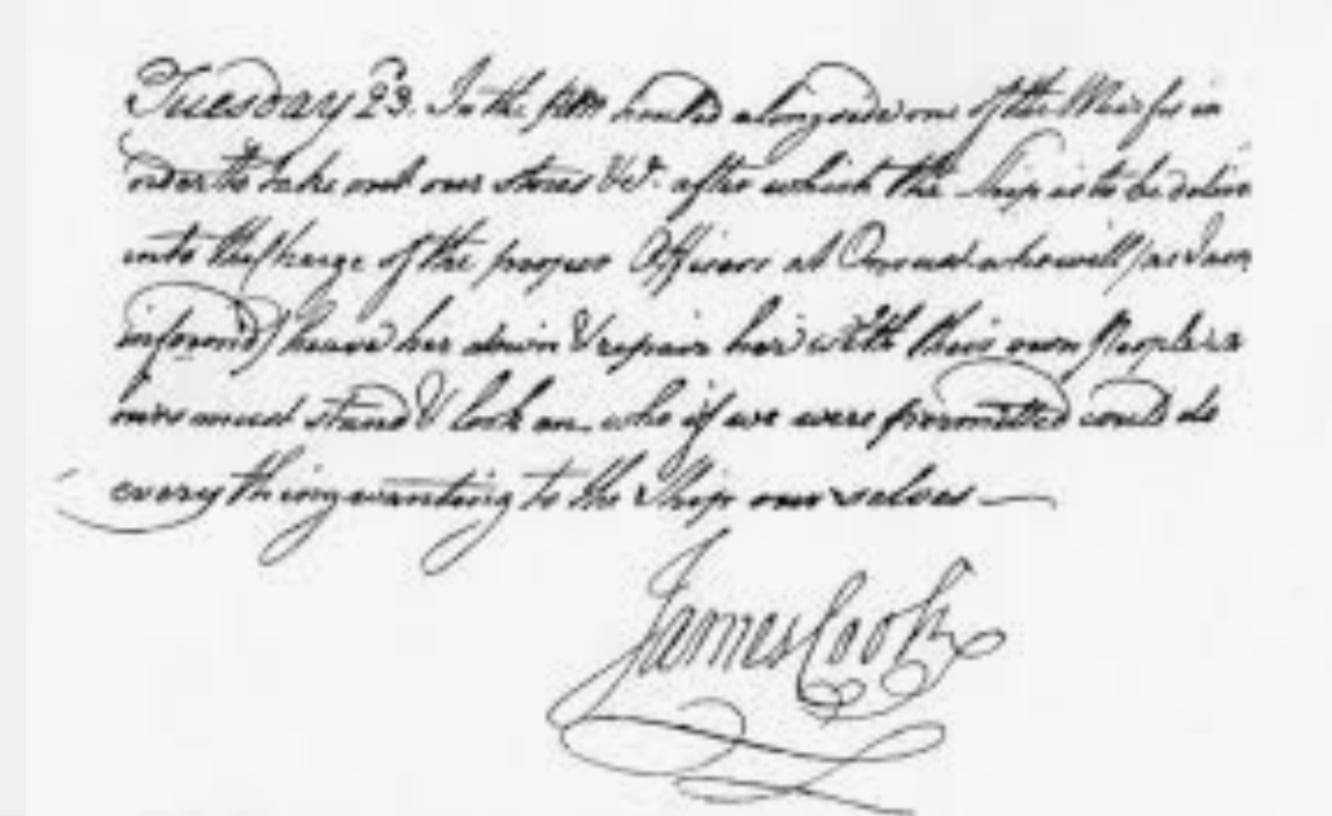 Tuesday 23. In the PM hauled alongside one of the Wharfes in
order to take out our stores &c. after which the Ship is to be deliver
into the Charge of the proper Officers at Onrust who will (as I am
inform'd) heave her down & repair her with their own People
ours must stand & look on, who if we were permitted could do
every thing wanting to the Ship our selves —
James Cook